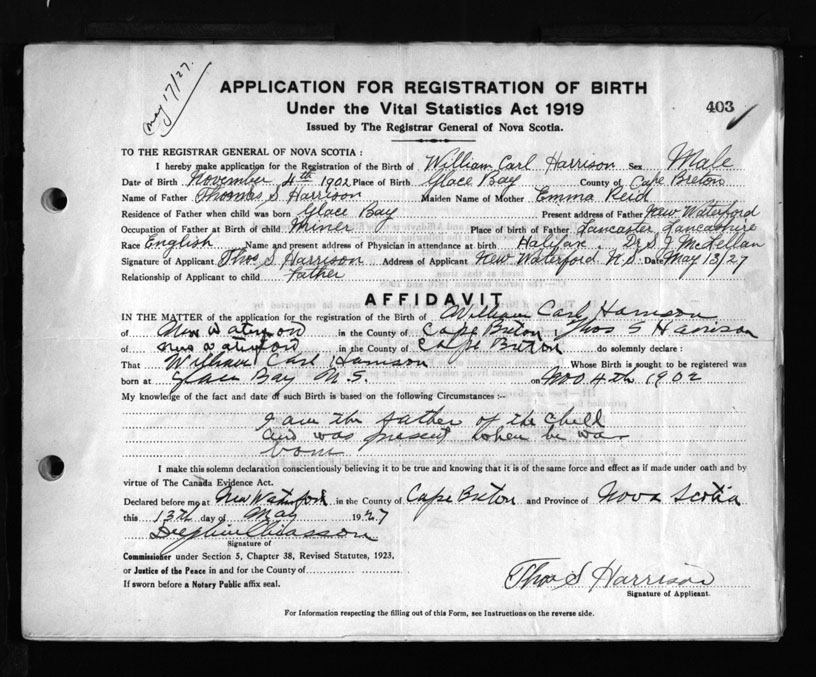 May 17/27.
APPLICATION FOR REGISTRATION OF BIRTH
Under the Vital Statistics Act 1919
403
Issued by The Registrar General of Nova Scotia.
TO THE REGISTRAR GENERAL OF NOVA SCOTIA :
I hereby make application for the Registration of the Birth of William Carl Harrison Sex Male
Date of Birth November 4th 1902 Place of Birth Glace Bay County of Cape Breton
Name of Father Thomas S Harrison Maiden Name of Mother Emma Reid
Residence of Father when child was born Glace Bay Present address of Father New Waterford
Occupation of Father at Birth of child Miner Place of birth of Father Lancaster, Lancashire
Race English Name and present address of Physician in attendance at birth Halifax. Dr S. J McLellan
Signature of Applicant Thos S Harrison Address of Applicant New Waterford N.S. Date May 13/27
Relationship of Applicant to child Father
AFFIDAVIT
IN THE MATTER of the application for the registration of the Birth of William Carl Harrison
of New Waterford in the County of Cape Breton, Thos S Harrison
of New Waterford in the County of Cape Breton do solemnly declare :
That William Carl Harrison Whose Birth is sought to be registered was
born at Glace Bay N.S. on Nov 4th 1902
My knowledge of the fact and date of such Birth is based on the following Circumstances :--
I am the father of the child
and was present when he was
born
I make this solemn declaration conscientiously believing it to be true and knowing that it is of the same force and effect as if made under oath and by
virtue of The Canada Evidence Act.
Declared before me at New Waterford in the County of Cape Breton and Province of Nova Scotia
this 13th day of May 1927
Signature of
Commissioner under Section 5, Chapter 38, Revised Statutes, 1923,
or Justice of the Peace in and for the County of
If sworn before a Notary Public affix seal.
Thos S Harrison
Signature of Applicant.
For Information respecting the filling out of this Form, see Instructions on the reverse side.